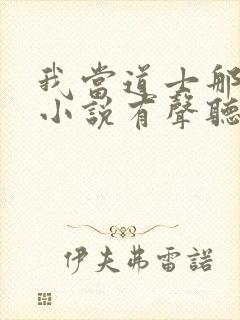 我當道士那
小說有聲聽
伊夫弗雷諾